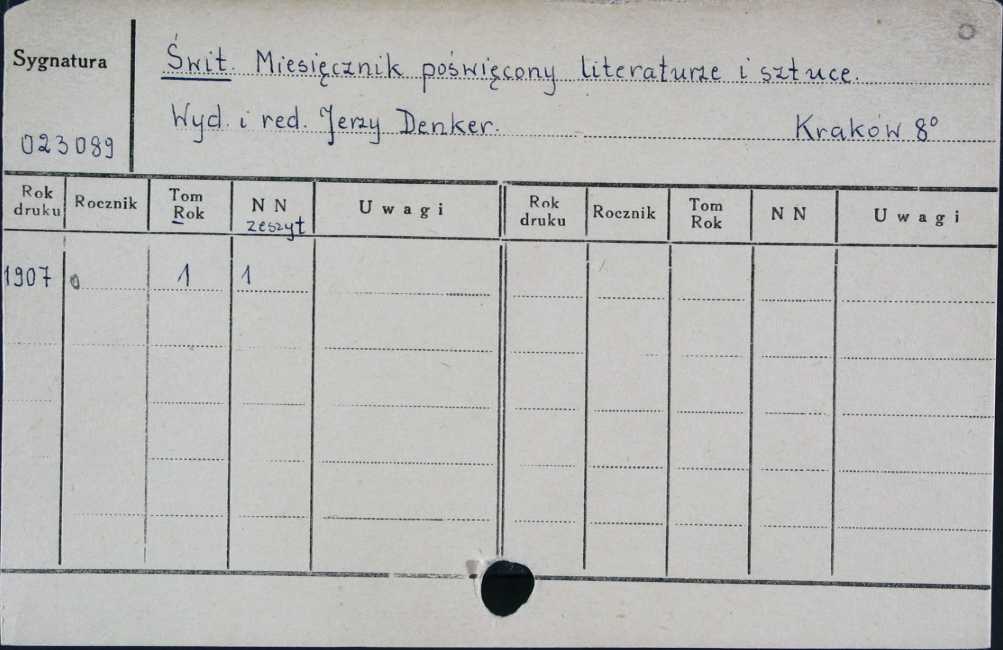 Sygnatura
Świt. Miesięcznik poświęcony literaturze i sztuce.
Wyd. i red. Jerzy Denker. Kraków 8°
023089
Rok druku Rocznik Tom Rok NN zeszyt Uwagi Rok druku Rocznik Tom Rok NN Uwagi
1907 1 1